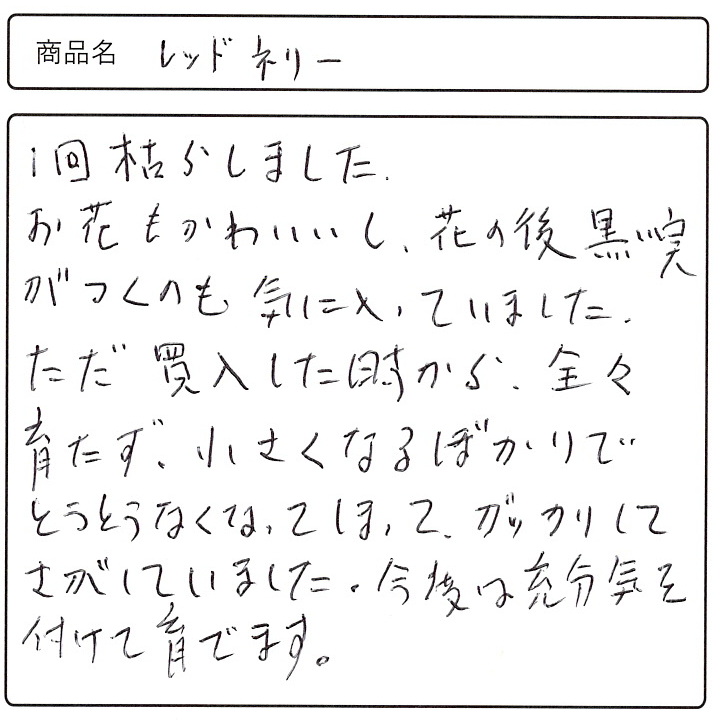 商品名 レッドネリー
1回枯らしました.
お花もかわいいし、花の後黒い実
がつくのも気に入っていました.
ただ買入した時から、全々
育たず、小さくなるばかりで
とうとうなくなってしまって、ガッカリして
さがしていました。今後は充分気を
付けて育てます。